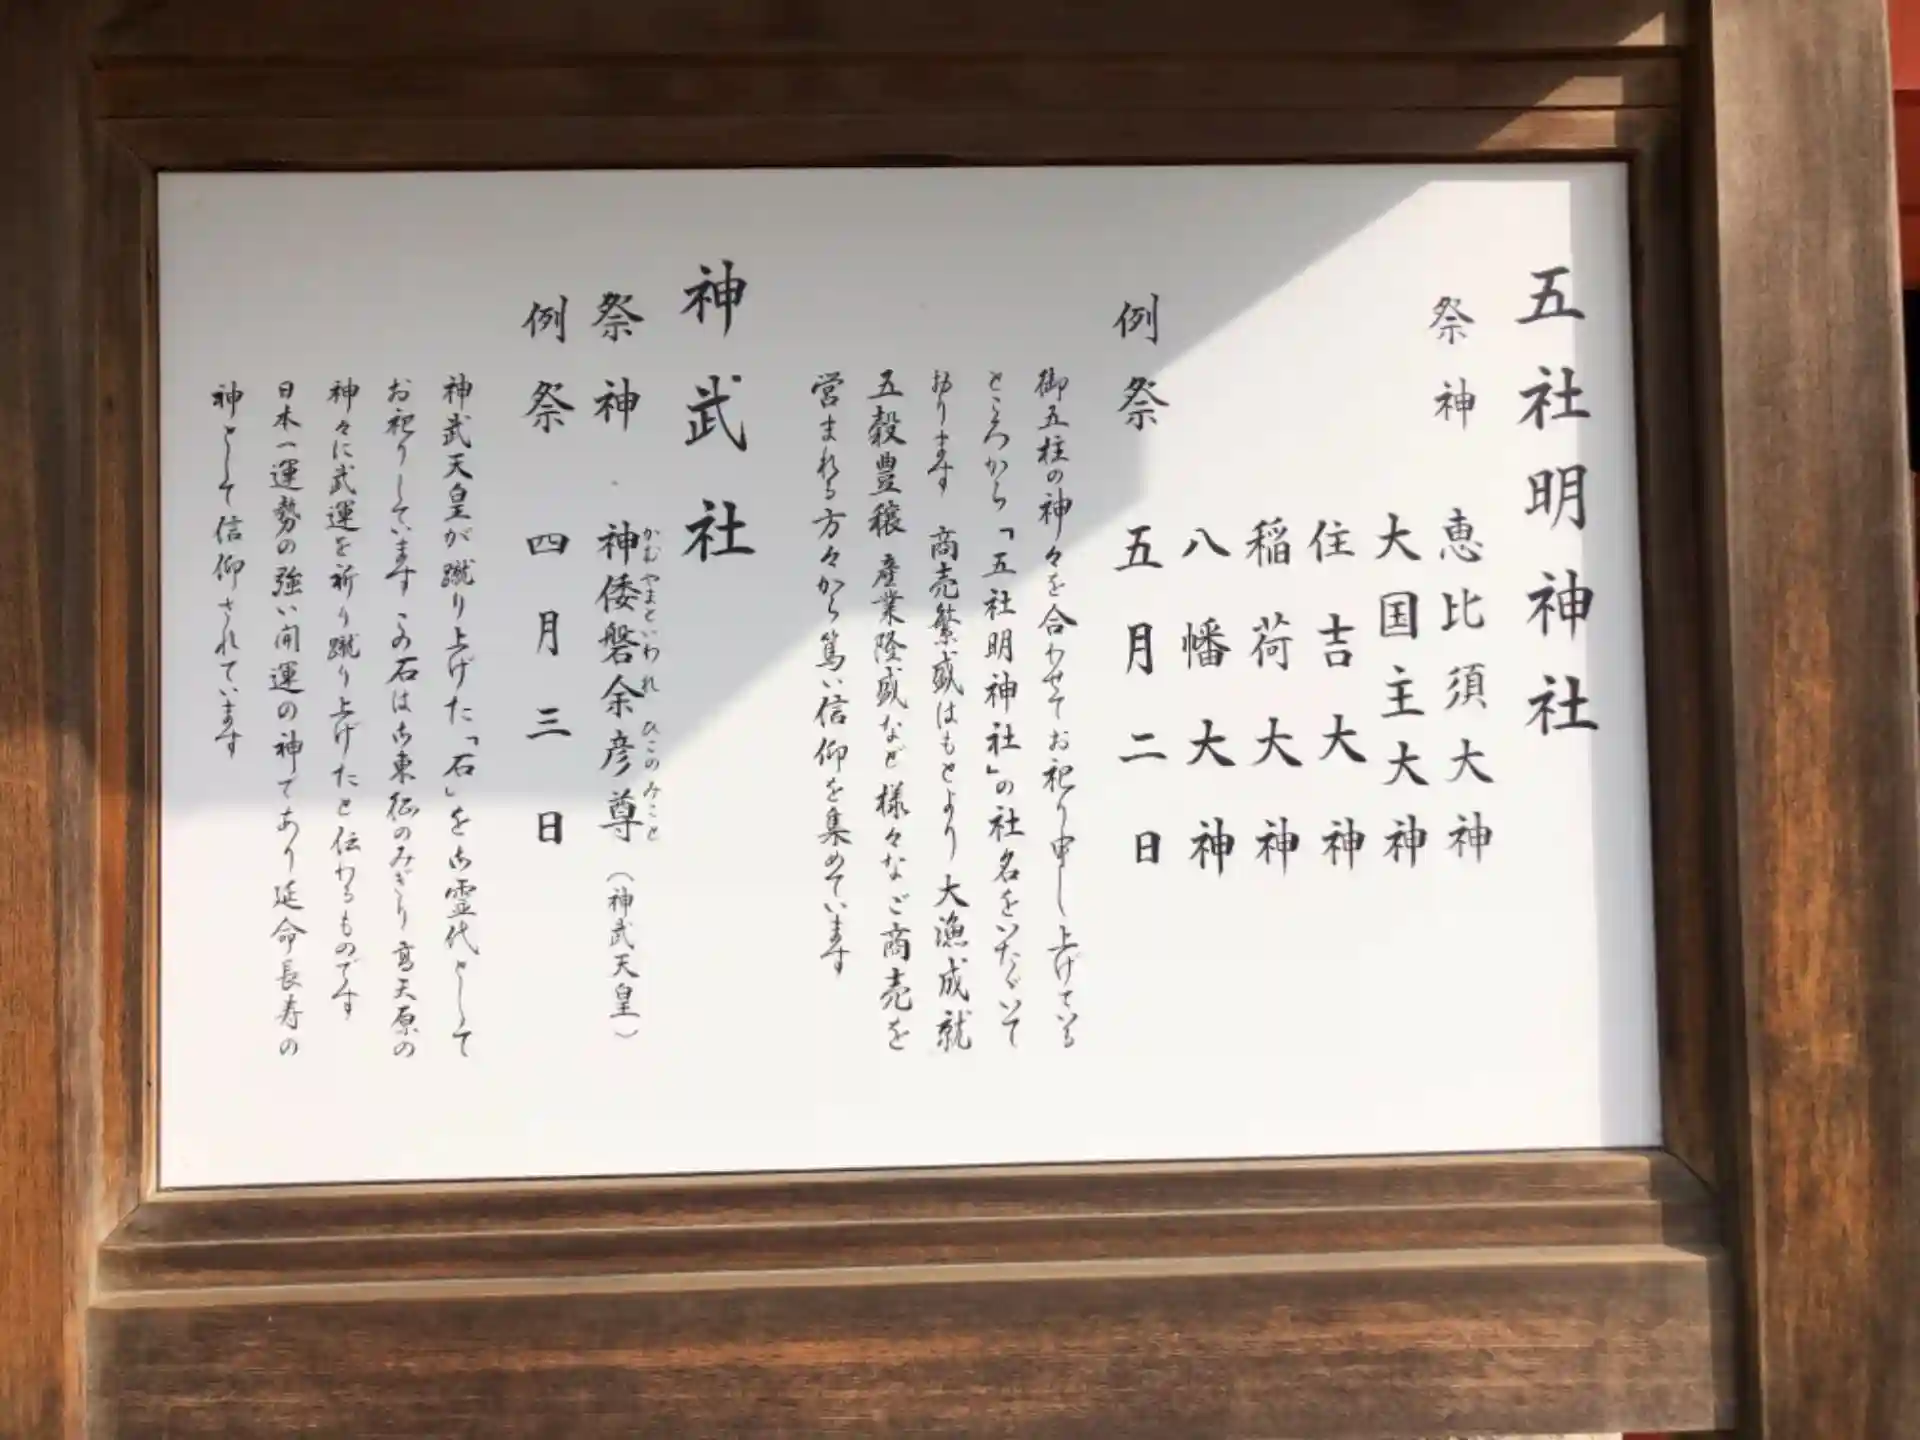 五社明神社
祭神 恵比須大神
大国主大神
住吉大神
稲荷大神
八幡大神
例祭 五月二日
御五柱の神々を合わせてお祀り申し上げている
ところから「五社明神社」の社名をいたゞいて
おります 商売繁盛はもとより大漁成就
五穀豊穣 産業隆盛など様々なご商売を
営まれる方々から篤い信仰を集めています
神武社
祭神 神倭磐余彦尊（神武天皇）
かむやまといわれ ひこのみこと
例祭 四月三日
神武天皇が蹴り上げた「石」を御霊代として
お祀りしています この石は御東征のみぎり高天原の
神々に武運を祈り蹴り上げたと伝わるものです
日本一運勢の強い開運の神であり延命長寿の
神として信仰されています